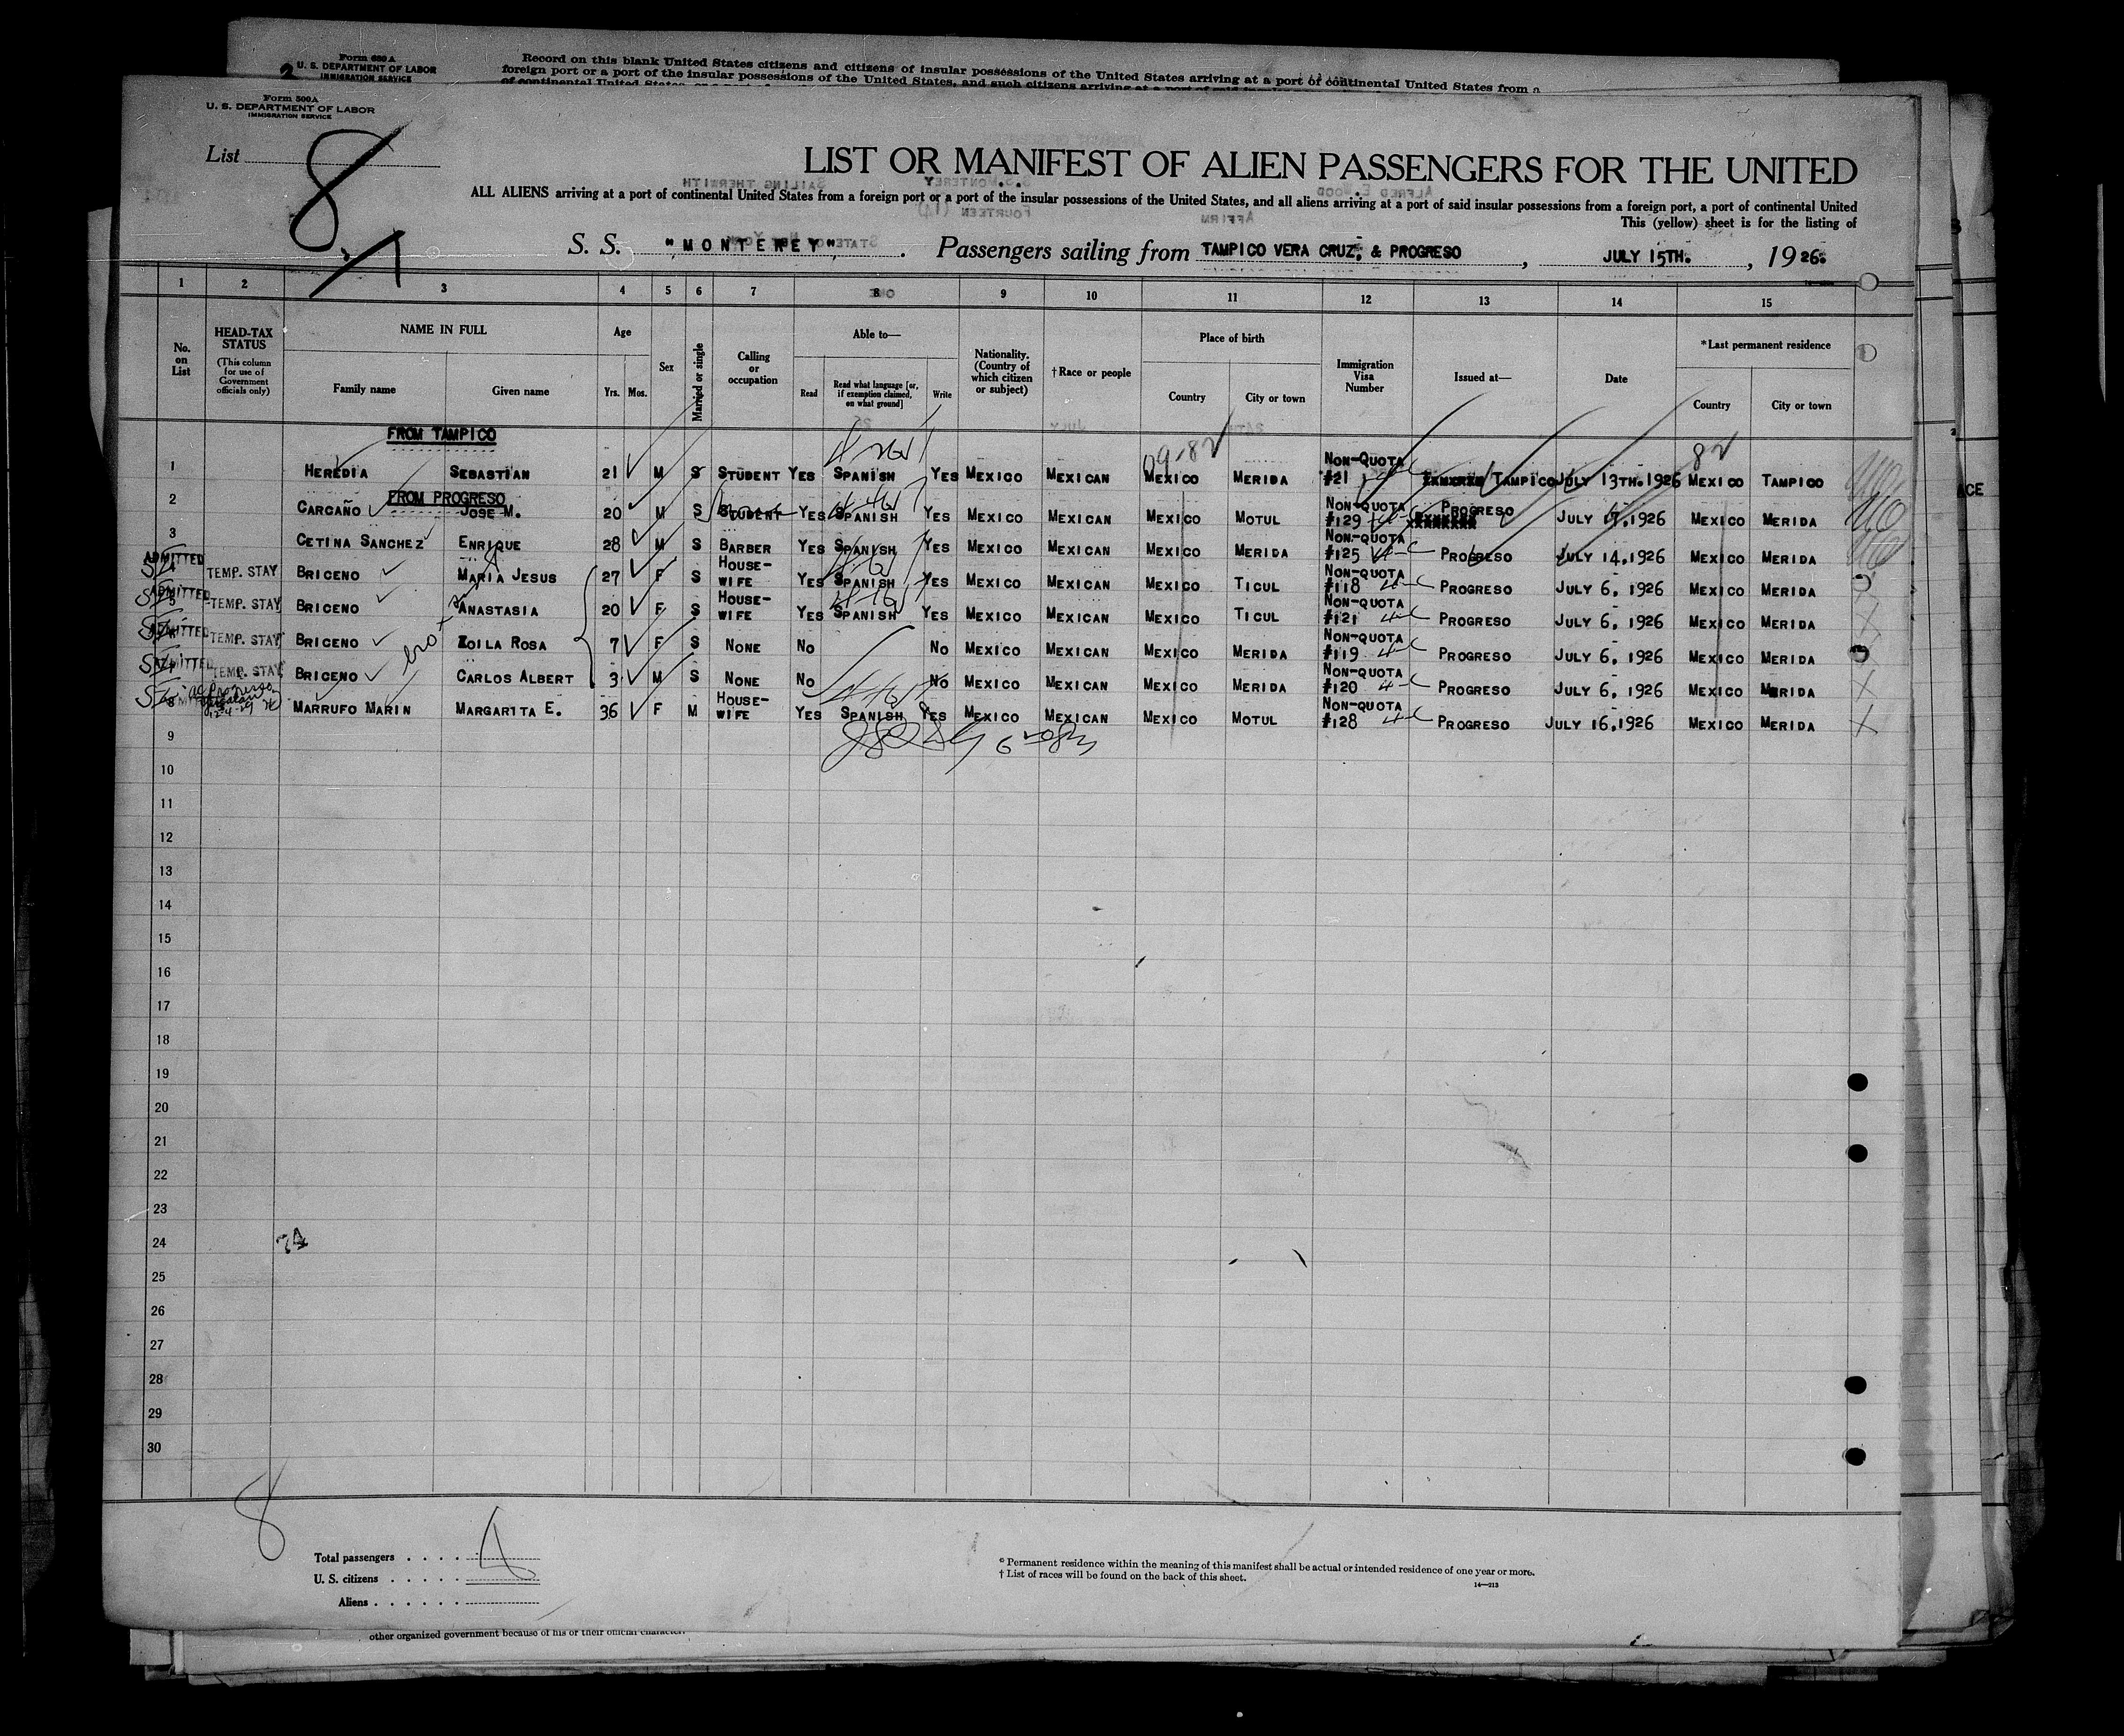 Form 680A
U. S. DEPARTMENT OF LABOR
IMMIGRATION SERVICE
2
Record on this blank United States citizens and citizens of insular possessions of the United States arriving at a port of continental United States from a
foreign port or a port of the insular possessions of the United States, and such citizens arriving at a port of said insular possessions
Form 500A
U. S. DEPARTMENT OF LABOR
IMMIGRATION SERVICE
List 8
LIST OR MANIFEST OF ALIEN PASSENGERS FOR THE UNITED
ALL ALIENS arriving at a port of continental United States from a foreign port or a port of the insular possessions of the United States, and all aliens arriving at a port of said insular possessions from a foreign port, a port of continental United
This (yellow) sheet is for the listing of
S. S. "MONTEREY". Passengers sailing from TAMPICO VERA CRUZ, & PROGRESO, JULY 15TH., 1926.
1 2 3 4 5 6 7 8 9 10 11 12 13 14 15
No. on List
HEAD-TAX STATUS (This column for use of Government officials only)
NAME IN FULL
Family name Given name
Age
Yrs. Mos.
Sex
Married or single
Calling or occupation
Able to—
Read
Read what language [or, if exemption claimed, on what ground]
Write
Nationality. (Country of which citizen or subject)
†Race or people
Place of birth
Country City or town
Immigration Visa Number
Issued at—
Date
*Last permanent residence
Country City or town
FROM TAMPICO
09-82 82
1 HEREDIA SEBASTIAN 21 M S STUDENT YES SPANISH YES MEXICO MEXICAN MEXICO MERIDA NON-QUOTA #21 TAMPICO JULY 13TH.1926 MEXICO TAMPICO
FROM PROGRESO
2 CARCAÑO JOSE M. 20 M S STUDENT YES SPANISH YES MEXICO MEXICAN MEXICO MOTUL NON-QUOTA #129 PROGRESO JULY 17,1926 MEXICO MERIDA
3 CETINA SANCHEZ ENRIQUE 28 M S BARBER YES SPANISH YES MEXICO MEXICAN MEXICO MERIDA NON-QUOTA #125 PROGRESO JULY 14,1926 MEXICO MERIDA
ADMITTED TEMP. STAY BRICENO MARIA JESUS 27 F S HOUSE-WIFE YES SPANISH YES MEXICO MEXICAN MEXICO TICUL NON-QUOTA #118 PROGRESO JULY 6, 1926 MEXICO MERIDA
ADMITTED 5 TEMP. STAY BRICENO ANASTASIA 20 F S HOUSE-WIFE YES SPANISH YES MEXICO MEXICAN MEXICO TICUL NON-QUOTA #121 PROGRESO JULY 6, 1926 MEXICO MERIDA
ADMITTED TEMP. STAY BRICENO ZOILA ROSA 7 F S NONE NO NO MEXICO MEXICAN MEXICO MERIDA NON-QUOTA #119 PROGRESO JULY 6, 1926 MEXICO MERIDA
ADMITTED TEMP. STAY BRICENO CARLOS ALBERT 3 M S NONE NO NO MEXICO MEXICAN MEXICO MERIDA NON-QUOTA #120 PROGRESO JULY 6, 1926 MEXICO MERIDA
8 MARRUFO MARIN MARGARITA E. 36 F M HOUSE-WIFE YES SPANISH YES MEXICO MEXICAN MEXICO MOTUL NON-QUOTA #128 PROGRESO JULY 16,1926 MEXICO MERIDA
9
10
11
12
13
14
15
16
17
18
19
20
21
22
23
24
25
26
27
28
29
30
8
Total passengers
U. S. citizens
Aliens
* Permanent residence within the meaning of this manifest shall be actual or intended residence of one year or more.
† List of races will be found on the back of this sheet.
14—213
other organized government because of his or their official character.